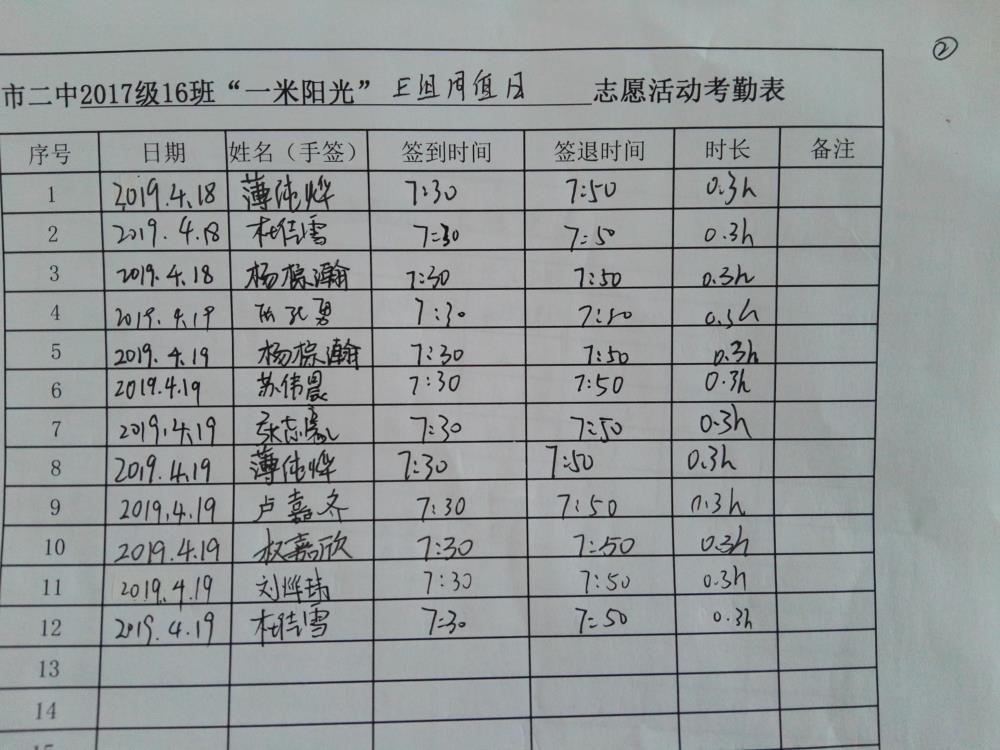 ②
市二中2017级16班“一米阳光” E组周值日 志愿活动考勤表
序号 日期 姓名（手签） 签到时间 签退时间 时长 备注
1 2019.4.18 薄伟烨 7:30 7:50 0.3h
2 2019.4.18 杜佳雪 7:30 7:50 0.3h
3 2019.4.18 杨棕瀚 7:30 7:50 0.3h
4 2019.4.19 7:30 7:50 0.3h
5 2019.4.19 杨棕瀚 7:30 7:50 0.3h
6 2019.4.19 苏伟晨 7:30 7:50 0.3h
7 2019.4.19 张志 7:30 7:50 0.3h
8 2019.4.19 薄伟烨 7:30 7:50 0.3h
9 2019.4.19 卢嘉冬 7:30 7:50 0.3h
10 2019.4.19 权嘉欣 7:30 7:50 0.3h
11 2019.4.19 刘烨玮 7:30 7:50 0.3h
12 2019.4.19 杜佳雪 7:30 7:50 0.3h
13
14